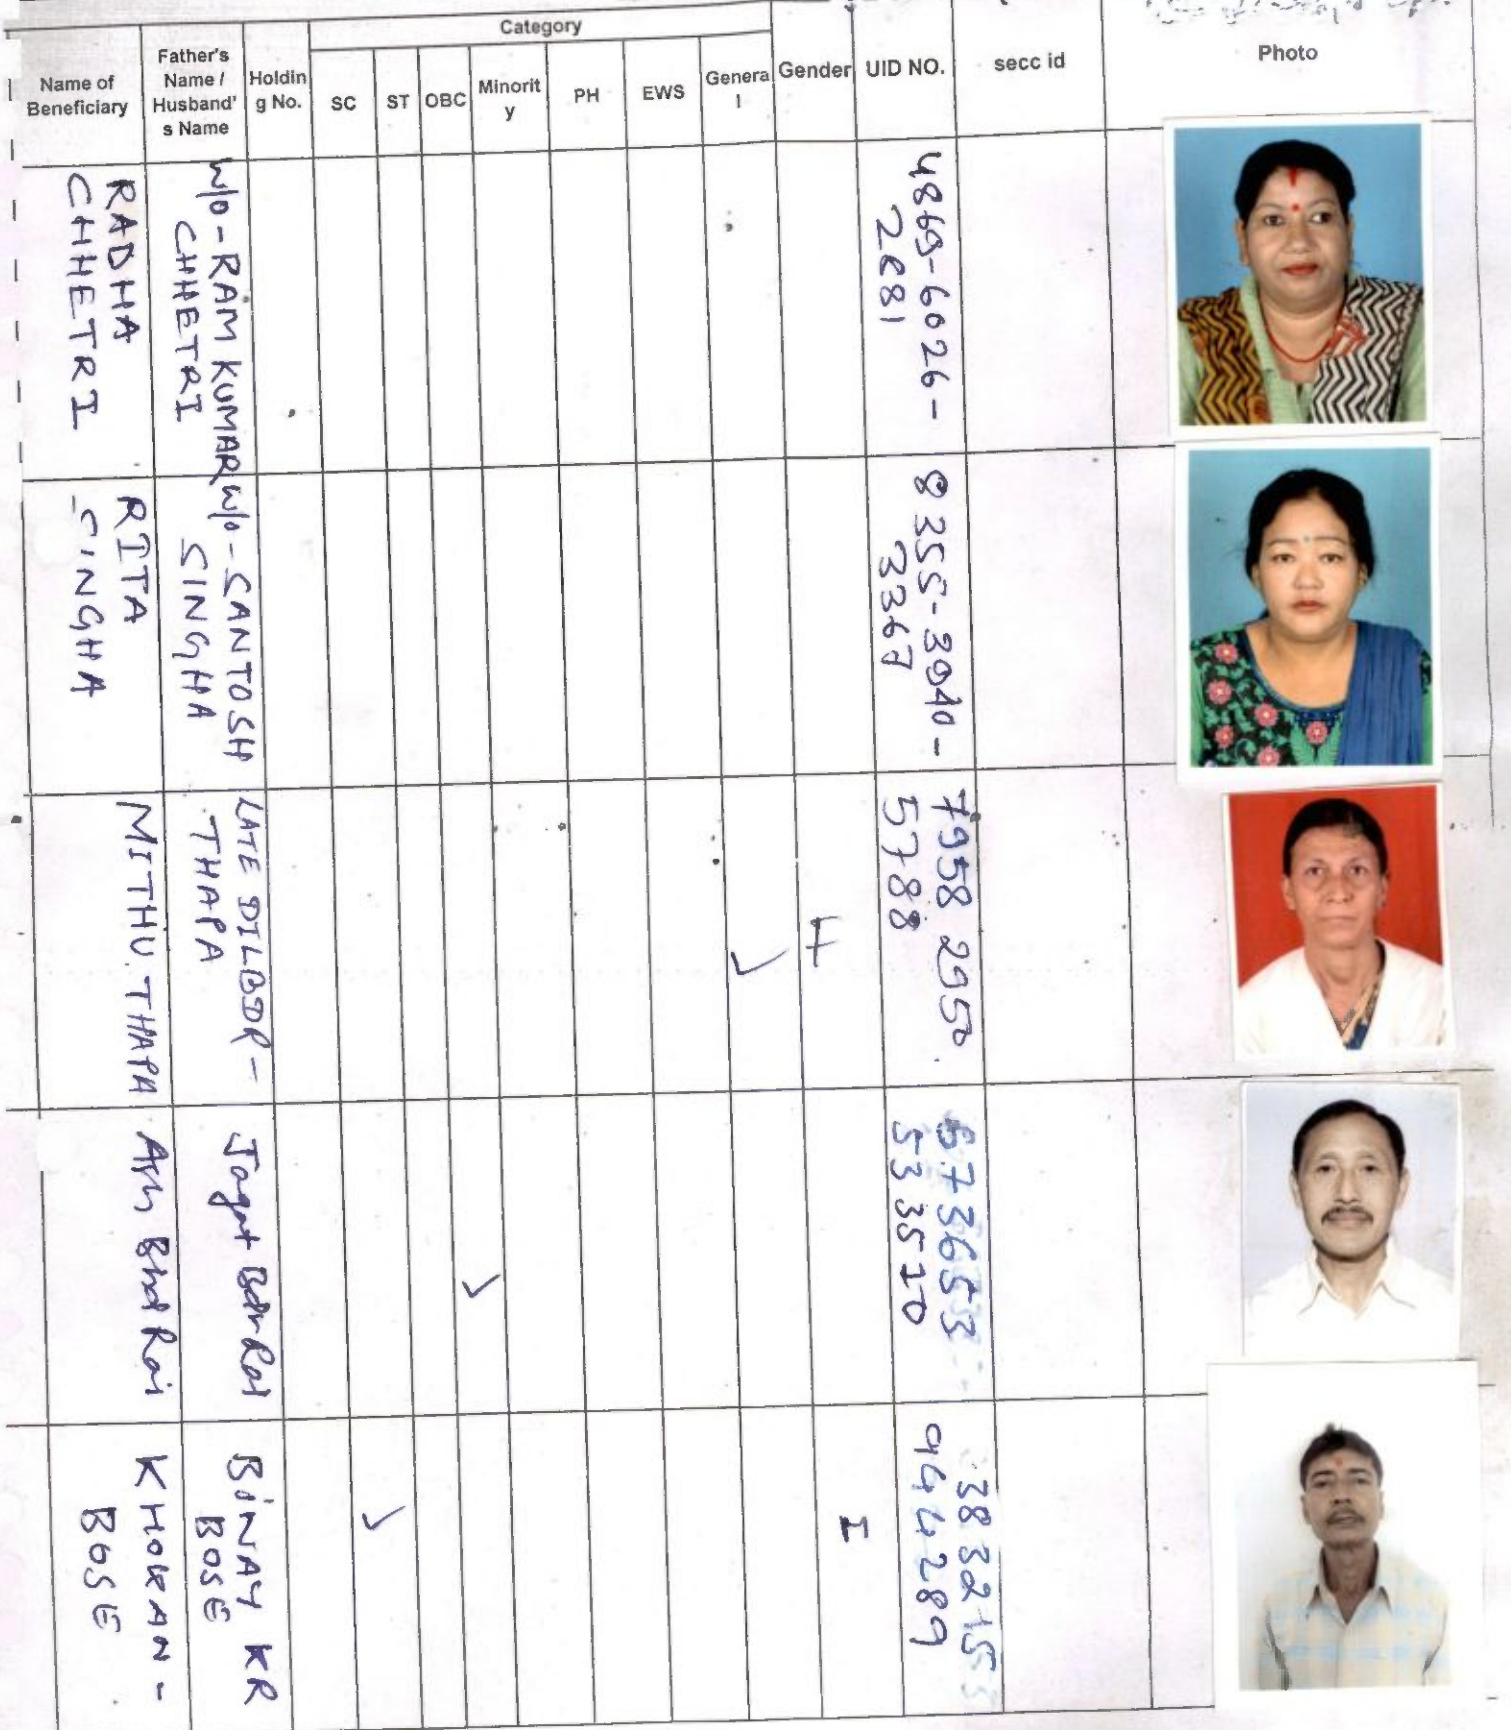 Category
Name of
Beneficiary
Father's
Name /
Husband'
s Name
Holdin
g No.
SC
ST
OBC
Minorit
y
PH
EWS
Genera
l
Gender
UID NO.
secc id
Photo
RADHA
CHHETRI
W/o - RAM KUMAR
CHHETRI
4869-6026-
2881
RITA
SINGHA
W/o - SANTOSH
SINGHA
8355-3040-
3367
MITHU THAPA
LATE DILBDR-
THAPA
✓
F
7958 2950
5788
Rai
Jagat Bdr Rai
✓
533510
KHOKAN -
BOSE
BINAY KR
BOSE
✓